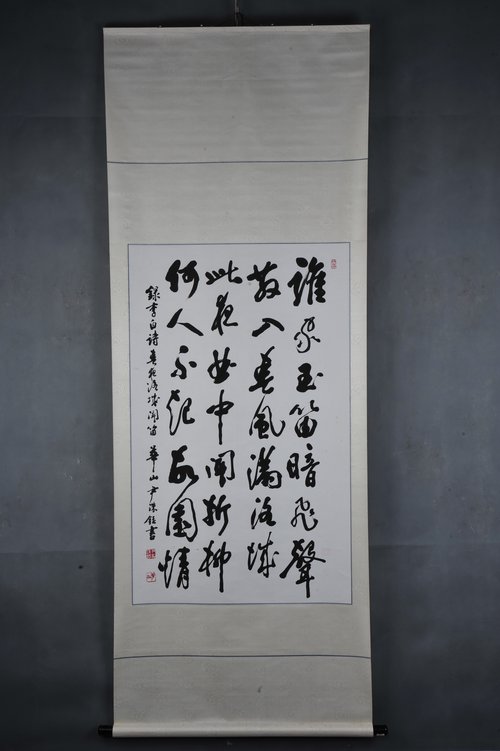 誰家玉笛暗飛聲
散入春風滿洛城
此夜曲中聞折柳
何人不起故園情
錄李白詩春夜洛城聞笛 華山尹書